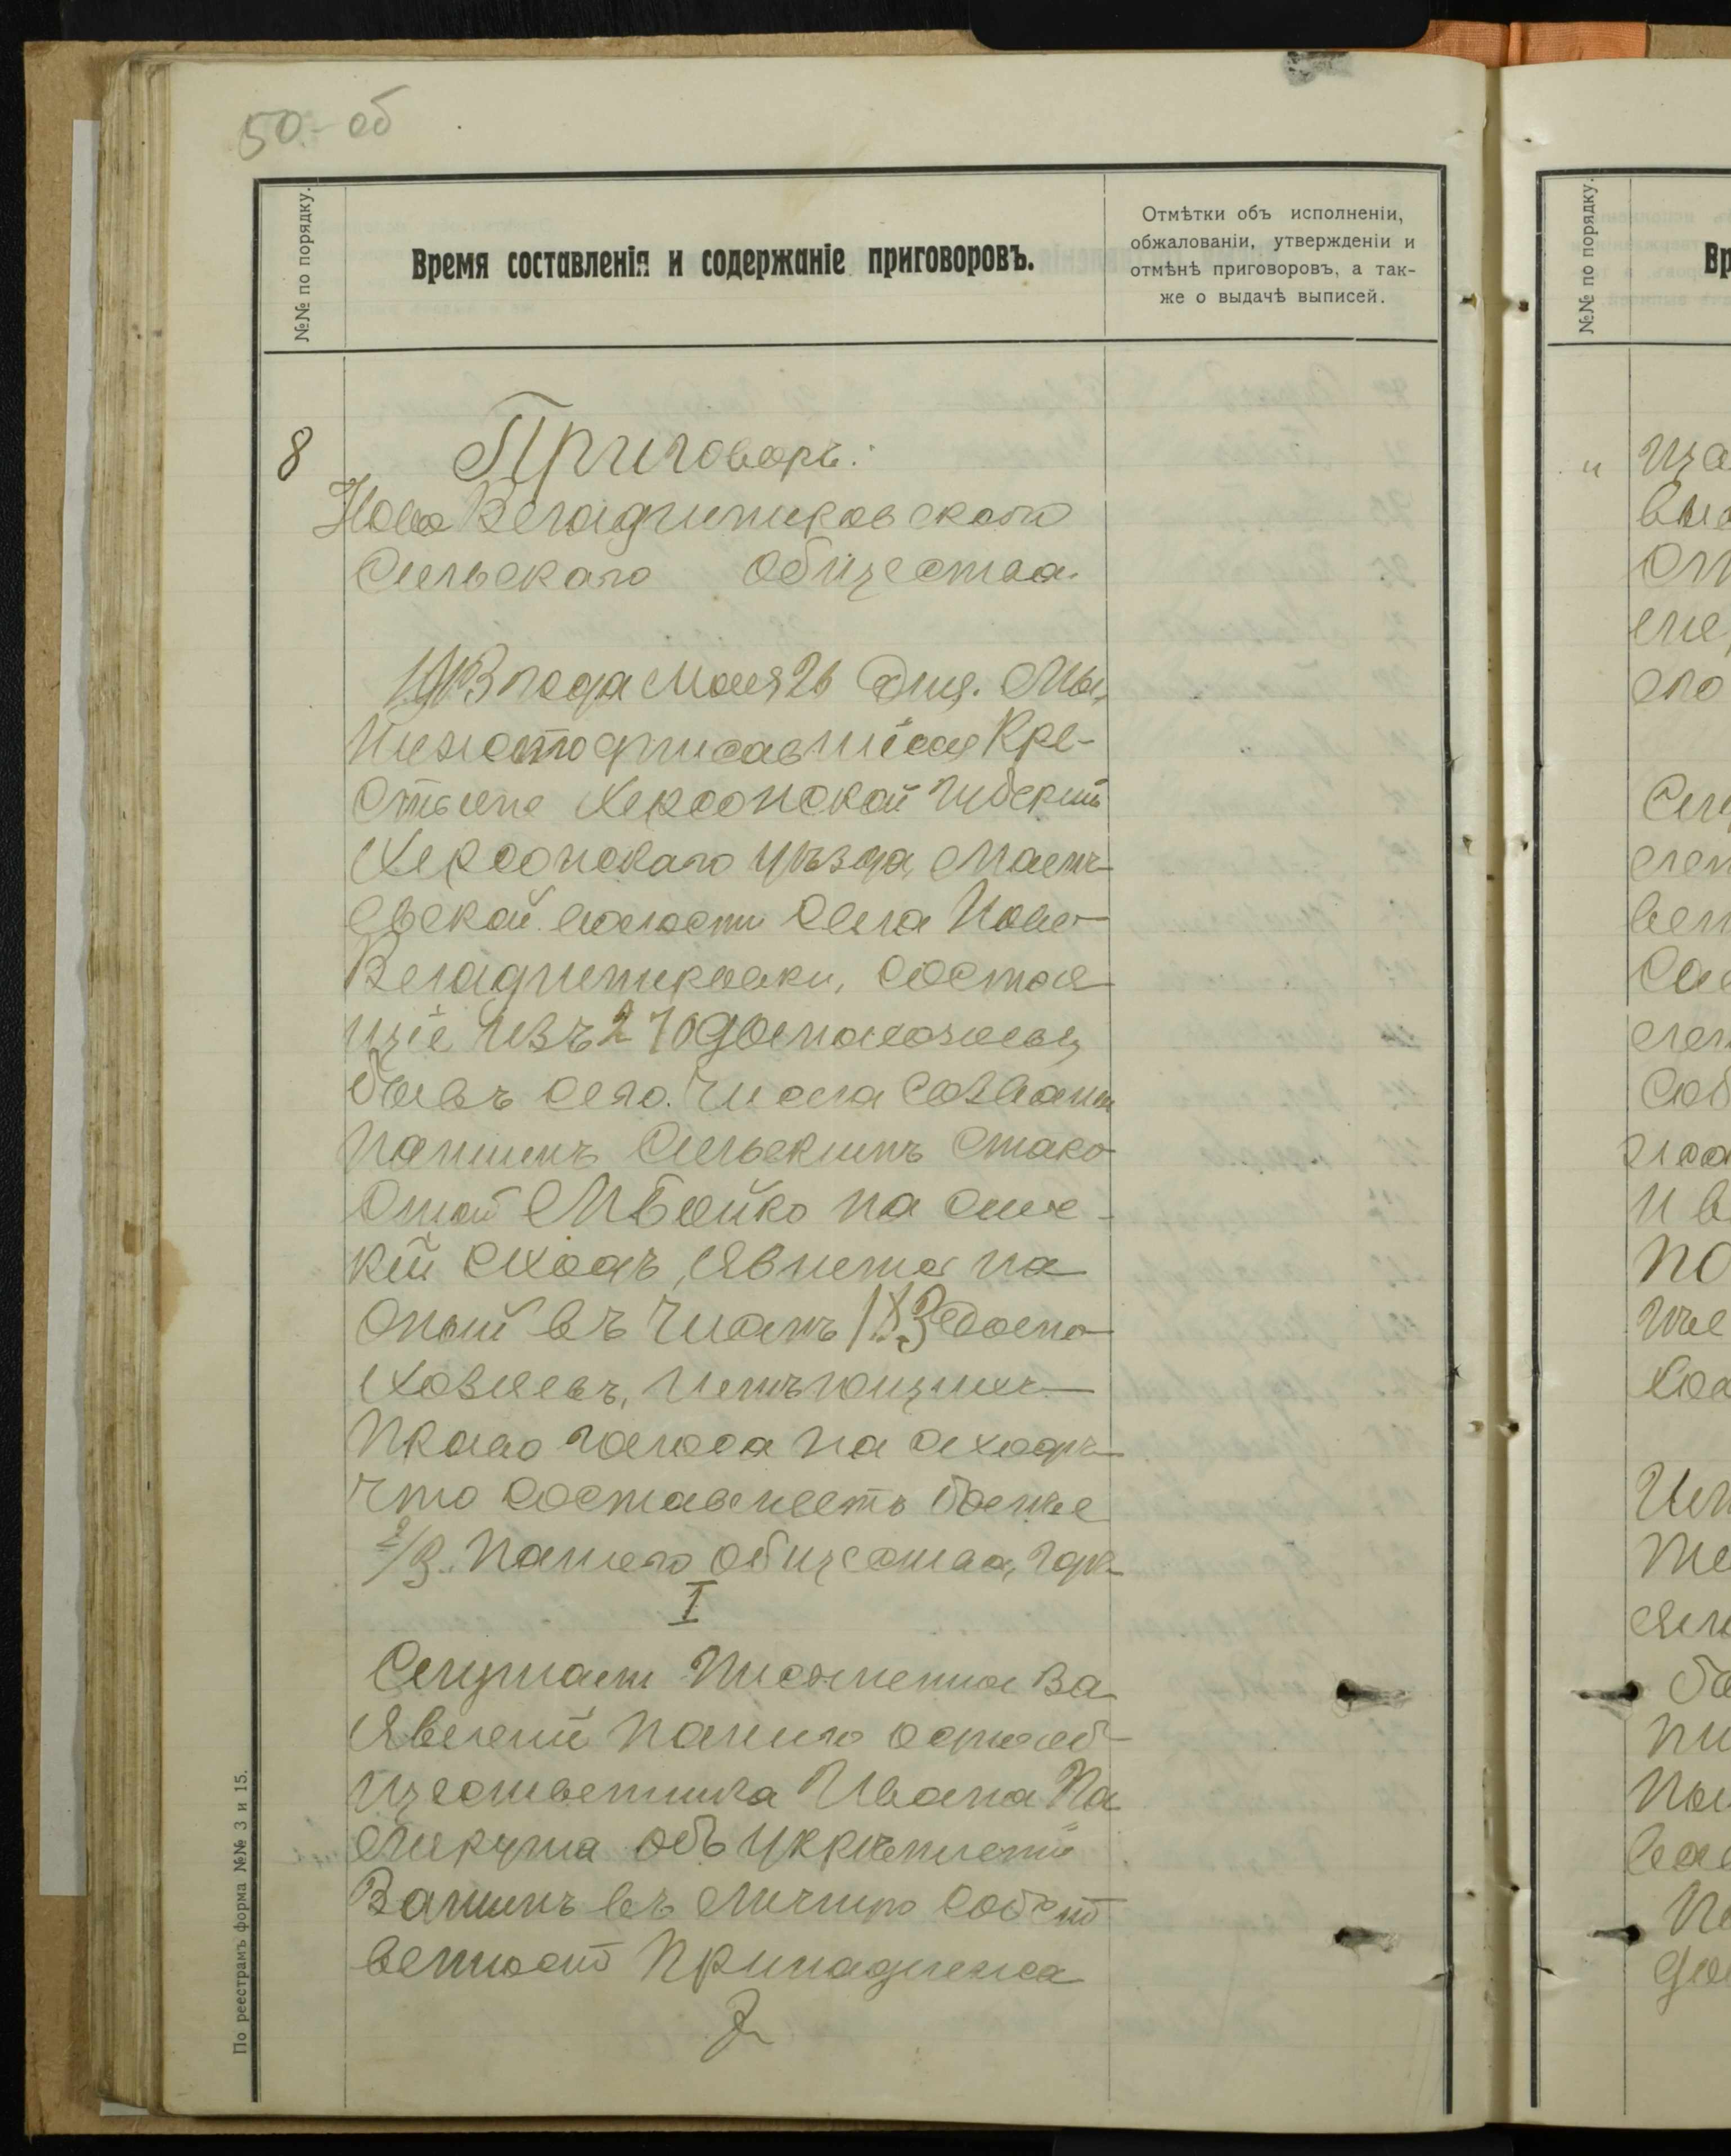 50.-об
№№ по порядку.
Время составленія и содержаніе приговоровъ.
Отмѣтки объ исполненіи,
обжалованіи, утвержденіи и
отмѣнѣ приговоровъ, а так-
же о выдачѣ выписей.
8
Приговоръ.
Ново Владимировскаго
Сельскаго Общества.
1913 года Мая 26 дня. Мы,
Нижеподписавшіеся Кре-
стьяне Херсонской Губерніи
Херсонскаго уѣзда,
волости Села Ново-
Владимировки, состоя
щіе изъ 270 домохозяевъ,
бывъ сего числа созваны
нашимъ Сельскимъ Старо
стой М Бойко на сельс
кій сходъ, явились на
оный въ числѣ 183 домо
хозяевъ, имѣющихъ
право голоса на сходѣ
что составляетъ болѣе
2/3. нашего общества, гдѣ
I
Слушали письменное За
явленіе нашего однооб-
щественника Ивана
объ Укрѣпленіи
Запимъ въ личную собст
венность принадлежа
По реестрамъ форма №№ 3 и 15.
№№ по порядку.
Вр